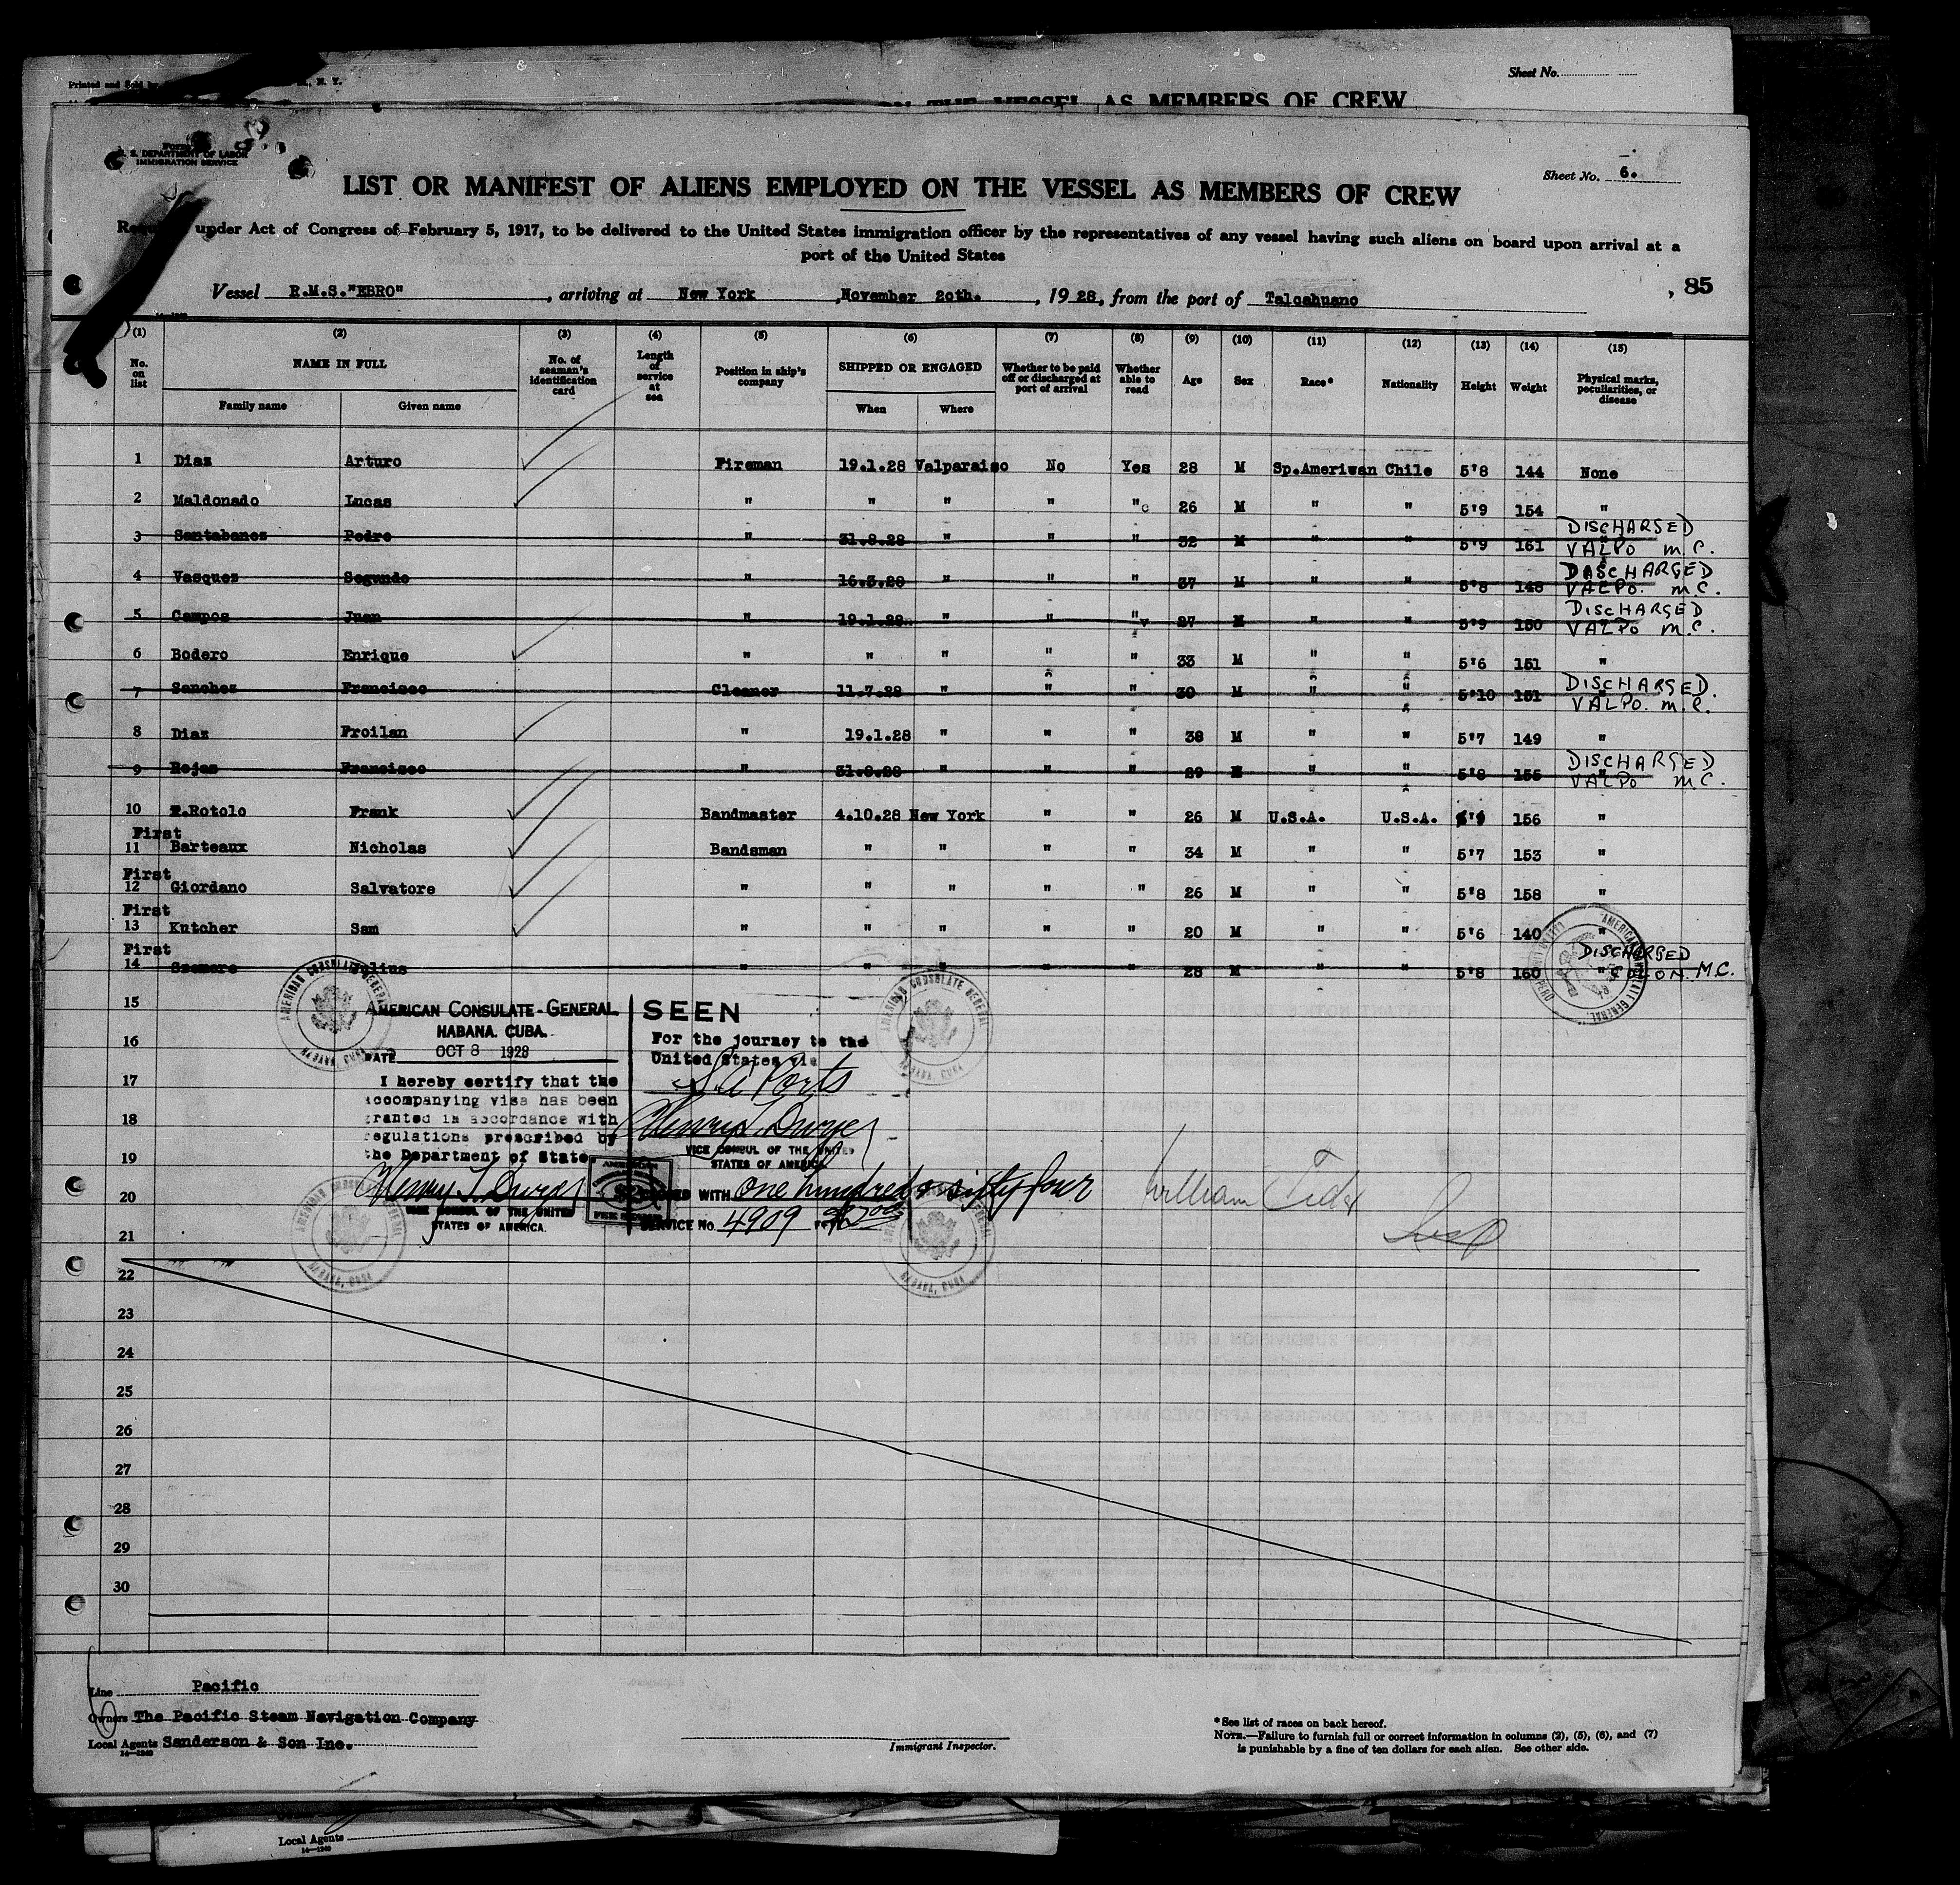 Printed and Sold by
N. Y.
Sheet No.
AS MEMBERS OF CREW
Form
U. S. DEPARTMENT OF LABOR
IMMIGRATION SERVICE
Sheet No. 6.
LIST OR MANIFEST OF ALIENS EMPLOYED ON THE VESSEL AS MEMBERS OF CREW
under Act of Congress of February 5, 1917, to be delivered to the United States immigration officer by the representatives of any vessel having such aliens on board upon arrival at a
port of the United States
Vessel R.M.S."EBRO", arriving at New York, November 20th., 1928, from the port of Talcahuano, 85
(1) (2) (3) (4) (5) (6) (7) (8) (9) (10) (11) (12) (13) (14) (15)
No. on list NAME IN FULL No. of seaman's identification card Length of service at sea Position in ship's company SHIPPED OR ENGAGED Whether to be paid off or discharged at port of arrival Whether able to read Age Sex Race* Nationality Height Weight Physical marks, peculiarities, or disease
Family name Given name When Where
1 Diaz Arturo Fireman 19.1.28 Valparaiso No Yes 28 M Sp.Ameriwan Chile 5'8 144 None
2 Maldonado Lucas " " " " " 26 M " " 5'9 154 "
3 Santabanes Pedro " 31.8.28 " " " 32 M " " 5'9 161 DISCHARGED VALPO M.C.
4 Vasquez Segundo " 16.3.28 " " " 37 M " " 5'8 148 DISCHARGED VALPO. M.C.
5 Campos Juan " 19.1.28 " " " 27 M " " 5'9 150 DISCHARGED VALPO M.C.
6 Bodero Enrique " " " " " 33 M " " 5'6 151 "
7 Sanchez Francisco Cleaner 11.7.28 " " " 30 M " " 5'10 151 DISCHARGED. VALPO. M.C.
8 Diaz Froilan " 19.1.28 " " " 38 M " " 5'7 149 "
9 Rojas Francisco " 31.8.28 " " " 29 M " " 5'8 155 DISCHARGED VALPO M.C.
10 Rotolo Frank Bandmaster 4.10.28 New York " " 26 M U.S.A. U.S.A. 156 "
First
11 Barteaux Nicholas Bandsman " " " " 34 M " " 5'7 153 "
First
12 Giordano Salvatore " " " " " 26 M " " 5'8 158 "
First
13 Kutcher Sam " " " " " 20 M " " 5'6 140 "
First
14 Szemere Julius " " " " " 28 M " " 5'8 160 " DISCHARGED COLON. M.C.
15
16
17
18
19
20
21
22
23
24
25
26
27
28
29
30
AMERICAN CONSULATE GENERAL
HABANA, CUBA
AMERICAN CONSULATE-GENERAL
HABANA. CUBA.
DATE OCT 8 1928
I hereby certify that the
accompanying visa has been
granted in accordance with
regulations prescribed by
the Department of State.
Henry T. Dwyer
VICE CONSUL OF THE UNITED
STATES OF AMERICA.
SEEN
For the journey to the
United States via
S.A. Ports
Henry T. Dwyer
VICE CONSUL OF THE UNITED
STATES OF AMERICA.
WITH one hundred & sixty four
SERVICE No. 4909
AMERICAN CONSULATE GENERAL
HABANA, CUBA
AMERICAN CONSULATE GENERAL
William
Line Pacific
Owners The Pacific Steam Navigation Company
Local Agents Sanderson & Son Inc.
14—1240
Immigrant Inspector.
*See list of races on back hereof.
NOTE.—Failure to furnish full or correct information in columns (2), (5), (6), and (7)
is punishable by a fine of ten dollars for each alien. See other side.
Local Agents
14—1240